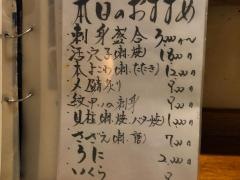 本日のおすすめ
刺身盛合 3,000〜
活穴子(刺.焼) 1,800
本まぐろ(刺.たたき) 1,200
〆鯖炙り 9
紋甲いかの刺身 9
貝柱(刺.焼.バタ焼) 1,000
さざえ(刺.壺) 7,00
うに 2,000
いくら